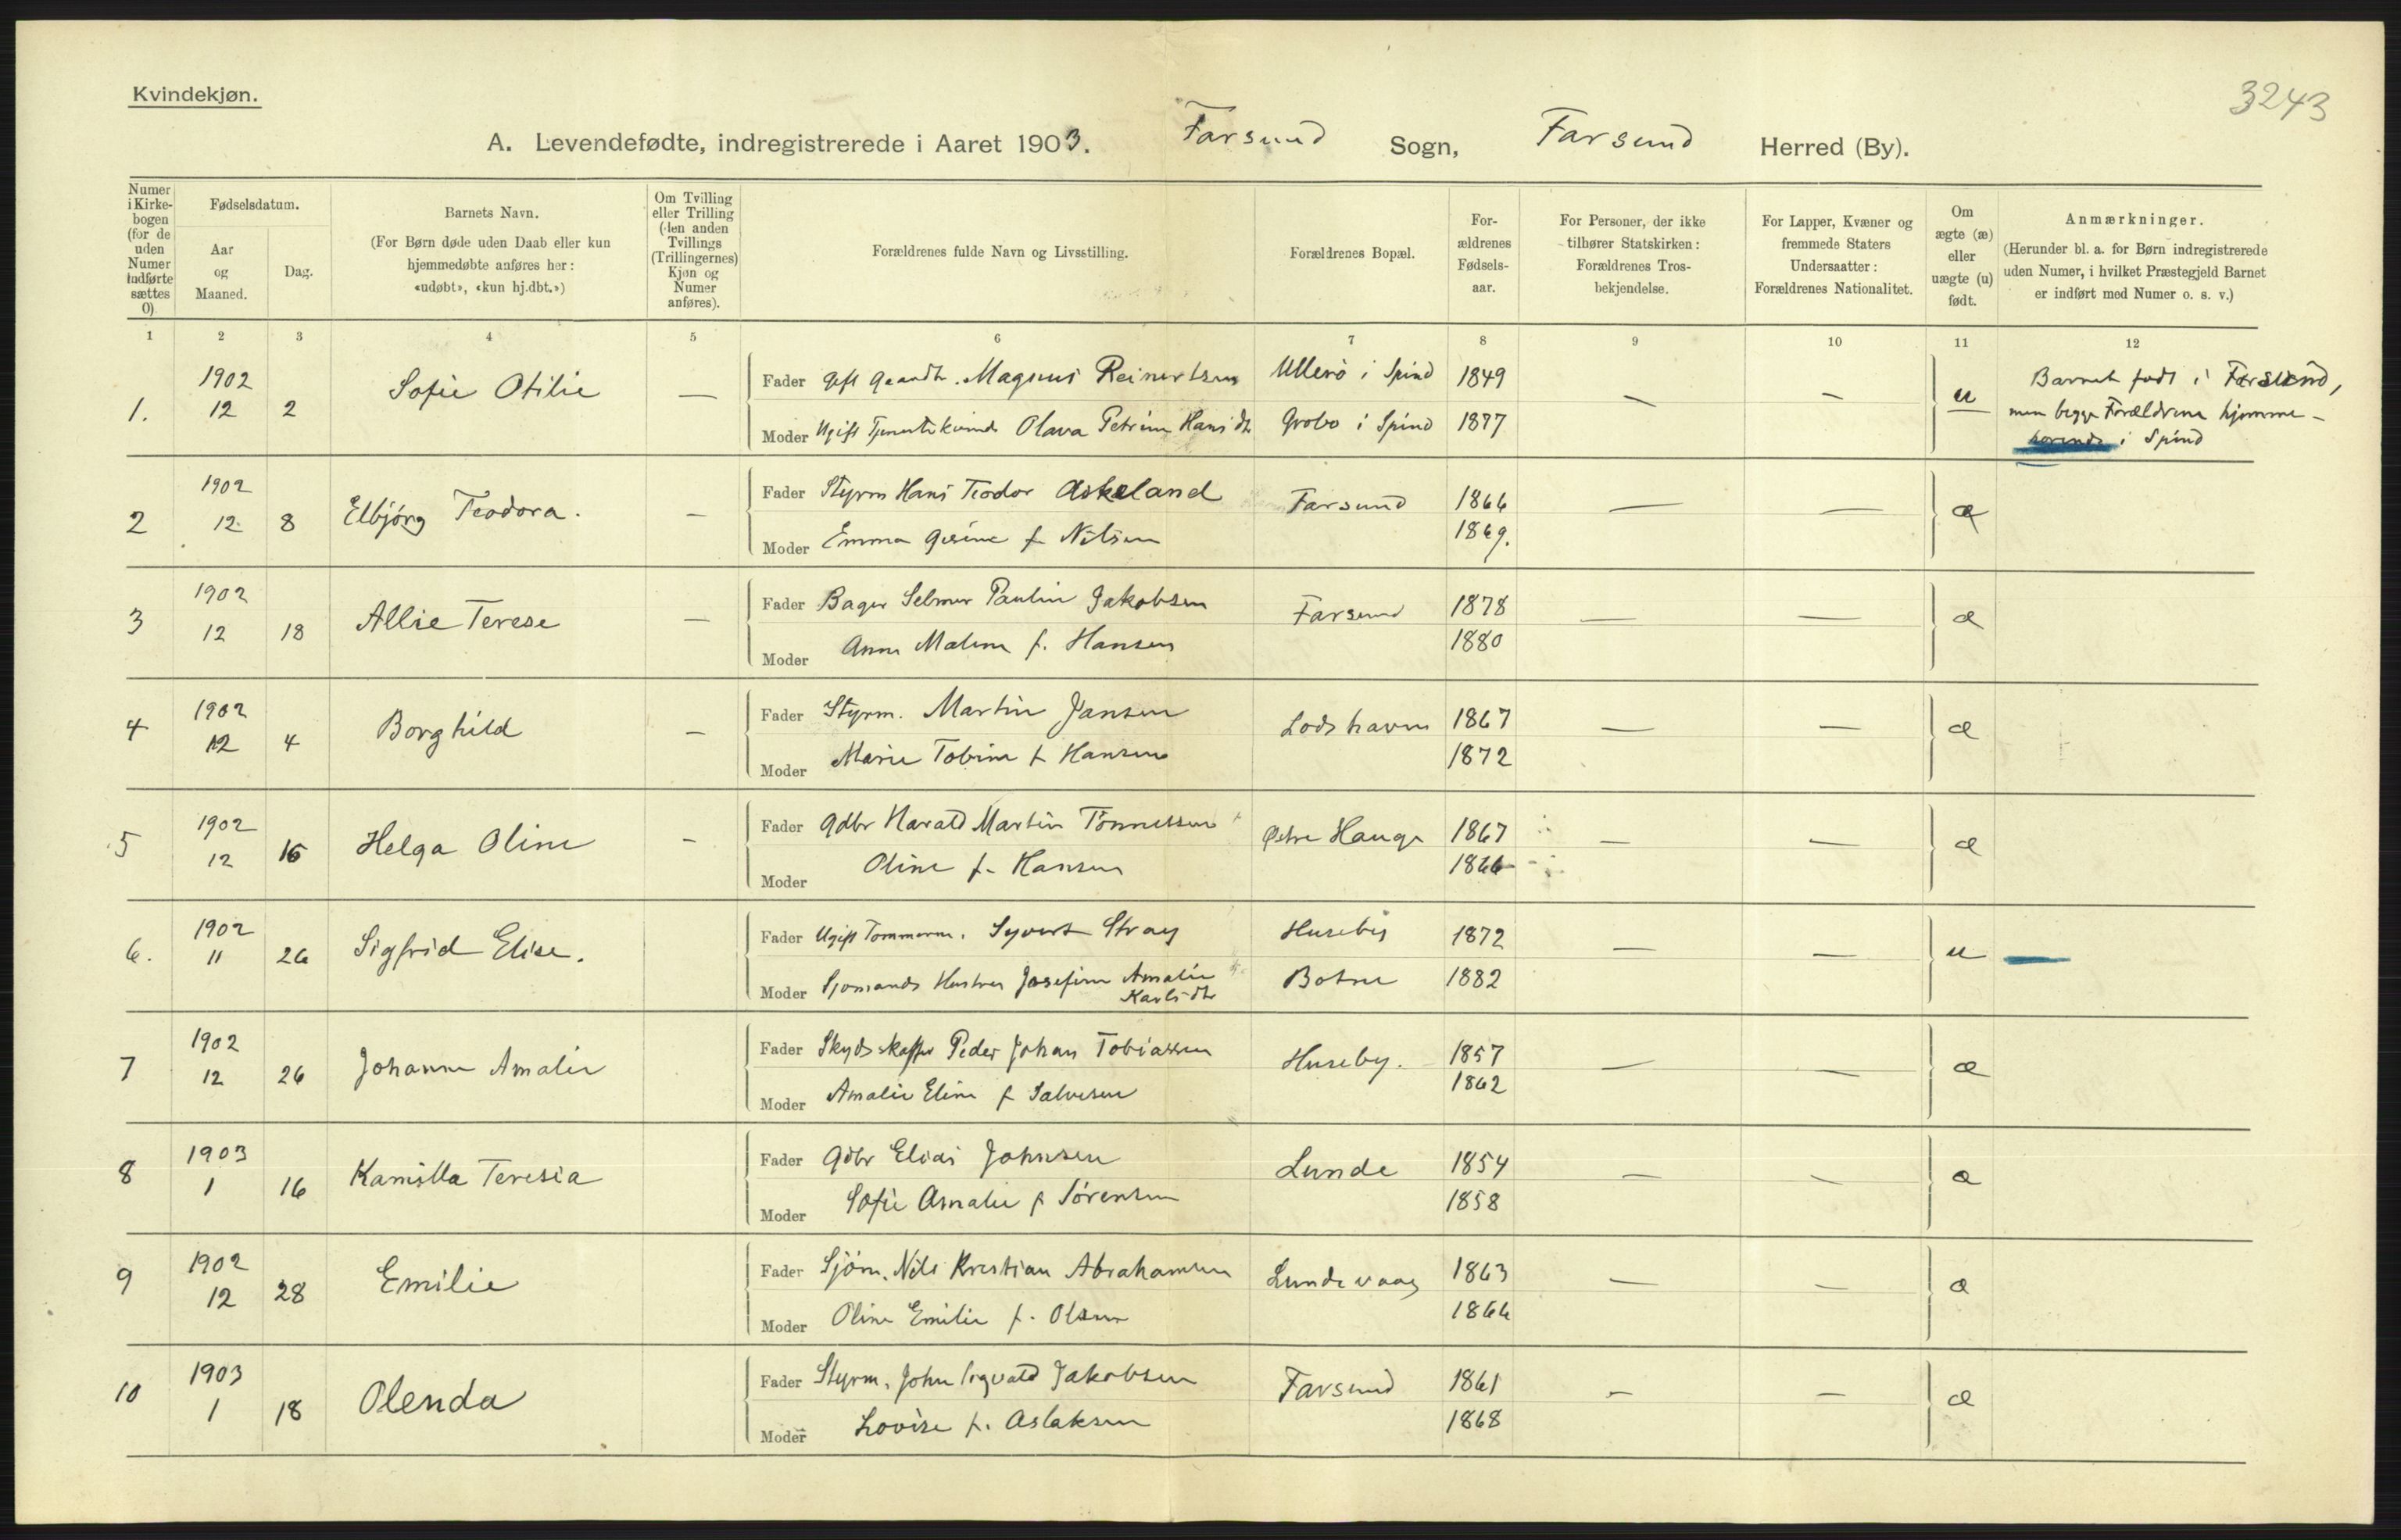 Kvindekjøn.
3243
A. Levendefødte, indregistrerede i Aaret 1903. Farsund Sogn, Farsund Herred (By).
Numer i Kirke-bogen (for de uden Numer indførte sættes 0)
Fødselsdatum.
Aar og Maaned.
Dag.
Barnets Navn.
(For Børn døde uden Daab eller kun hjemmedøbte anføres her: «udøbt», «kun hj.dbt.»)
Om Tvilling eller Trilling (den anden Tvillings (Trillingernes) Kjøn og Numer anføres).
Forældrenes fulde Navn og Livsstilling.
Forældrenes Bopæl.
For-ældrenes Fødsels-aar.
For Personer, der ikke tilhører Statskirken: Forældrenes Tros-bekjendelse.
For Lapper, Kvæner og fremmede Staters Undersaatter: Forældrenes Nationalitet.
Om ægte (æ) eller uægte (u) født.
Anmærkninger.
(Herunder bl. a. for Børn indregistrerede uden Numer, i hvilket Præstegjeld Barnet er indført med Numer o. s. v.)
1 2 3 4 5 6 7 8 9 10 11 12
1. 1902 12 2 Sofie Otilie —
Fader Gift Magnus Reinertsen Ullerö i Spind 1849
Moder Ugift Olava Petrine Hansdtr Grobo i Spind 1877
— — u
Barnet født i Farsund,
men begge Forældrene hjemme-
hørende i Spind
2 1902 12 8 Elbjörg Teodora. —
Fader Styrm Hans Teodor Askeland Farsund 1866
Moder Emma Gesine f. Nilsen 1869.
— — æ
3 1902 12 18 Allie Terese —
Fader Bager Selmer Paulin Jakobsen Farsund 1878
Moder Anna Malene f. Hansen 1880
— — æ
4 1902 12 4 Borghild —
Fader Styrm. Martin Jansen Lodshavn 1867
Moder Marie Tobine f. Hansen 1872
— — æ
5 1902 12 16 Helga Oline —
Fader Gdbr Harald Martin Tönnessen Østre Hauge 1867
Moder Oline f. Hansen 1866
— — æ
6. 1902 11 26 Sigfrid Elise.
Fader Ugift Tømmerm. Syvert Stray Huseby 1872
Moder Sjømands Hustru Josefine Amalie Karlsdtr Botne 1882
— — u —
7 1902 12 26 Johanne Amalie
Fader Skydsskaffer Peder Johan Tobiassen Huseby. 1857
Moder Amalie Eline f. Salvesen 1862
— — æ
8 1903 1 16 Kamilla Teresia
Fader Gdbr Elias Johnsen Lunde 1854
Moder Sofie Amalie f. Sörensen 1858
— — æ
9 1902 12 28 Emilie
Fader Sjöm. Nils Kristian Abrahamsen Lundevaag 1863
Moder Oline Emilie f. Olsen 1866
— — æ
10 1903 1 18 Olenda
Fader Styrm. John Sigvald Jakobsen Farsund 1861
Moder Lovise f. Aslaksen 1868
— — æ